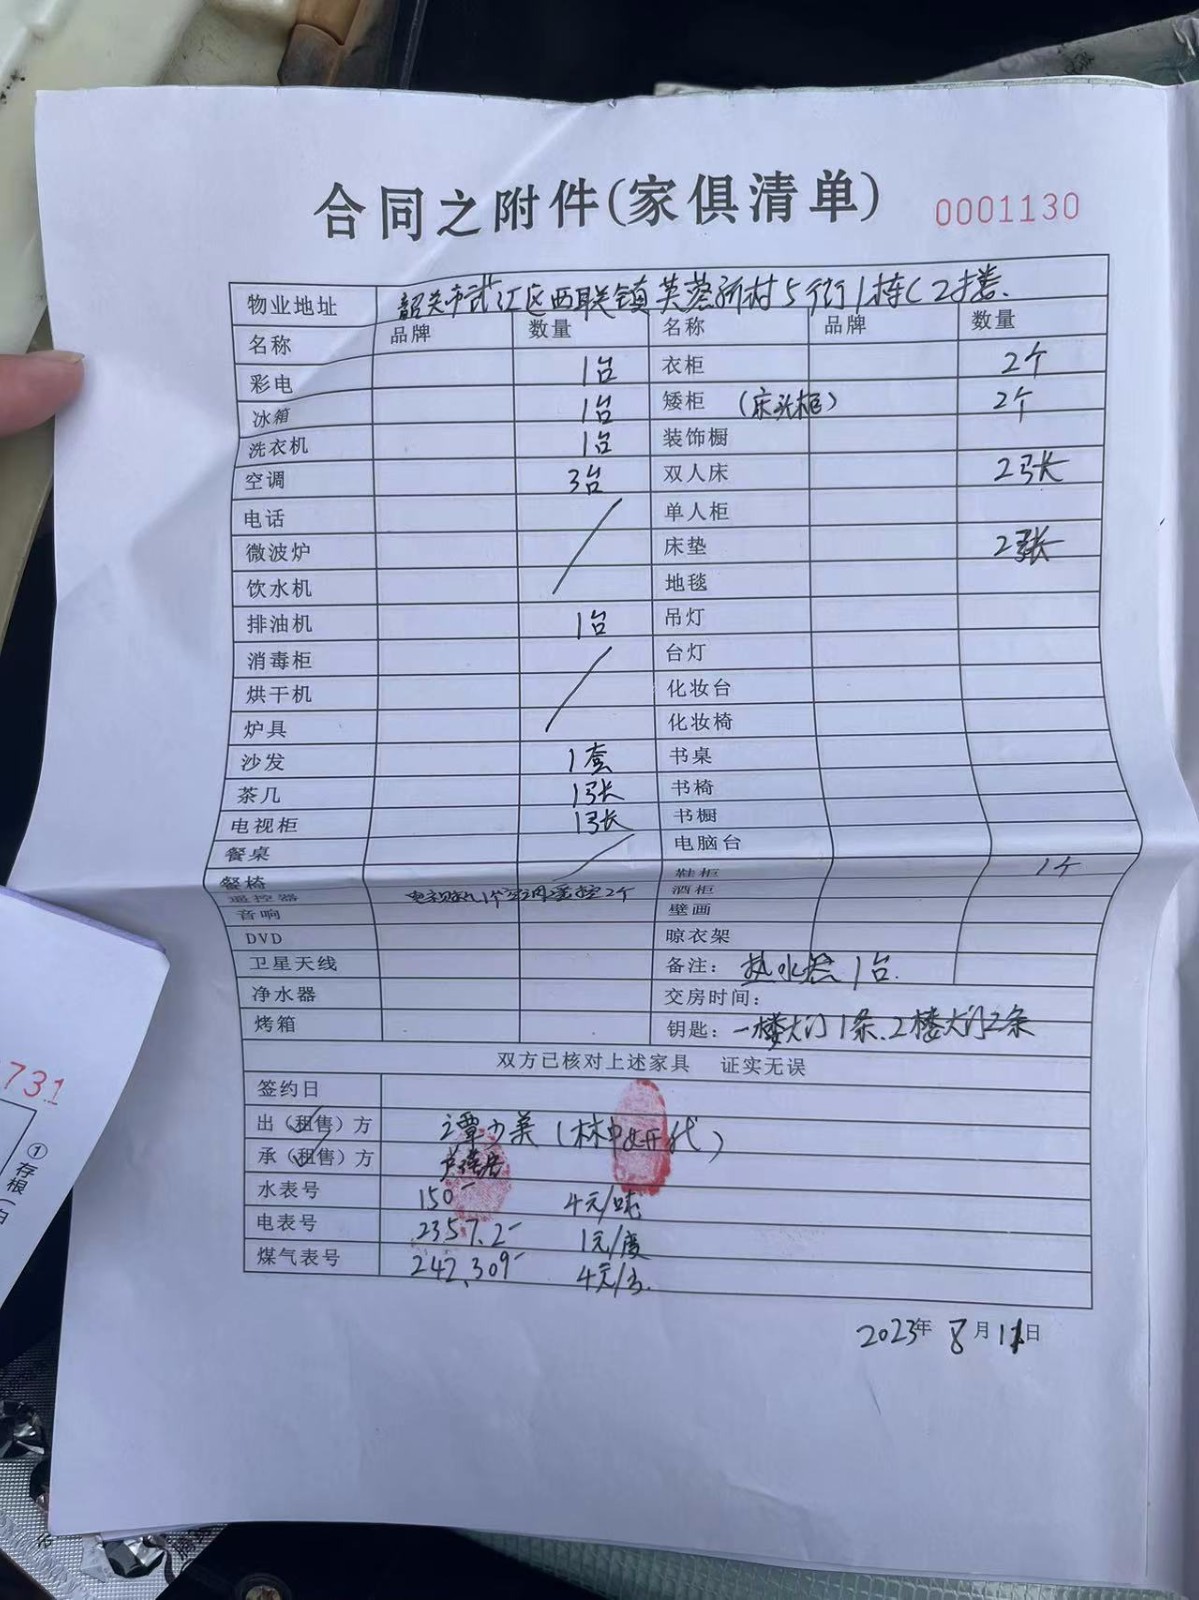 合同之附件(家俱清单) 0001130
物业地址 韶关市武江区西联镇芙蓉新村5街1栋C2楼.
名称 品牌 数量 名称 品牌 数量
彩电 1台 衣柜 2个
冰箱 1台 矮柜 (床头柜) 2个
洗衣机 1台 装饰橱
空调 3台 双人床 2张
电话 单人柜
微波炉 床垫 2张
饮水机 地毯
排油机 1台 吊灯
消毒柜 台灯
烘干机 化妆台
炉具 化妆椅
沙发 1套 书桌
茶几 1张 书椅
电视柜 1张 书橱
餐桌 电脑台
餐椅 鞋柜 1个
遥控器 1个空调遥控2个 酒柜
音响 壁画
DVD 晾衣架
卫星天线 备注: 热水器1台.
净水器 交房时间:
烤箱 钥匙: 一楼大门1条.2楼大门2条
双方已核对上述家具 证实无误
签约日
出(租售)方 谭少英(林中妍代)
承(租售)方
水表号 150 4元/吨
电表号 2357.2 1元/度
煤气表号 242.309 4元/方.
2023年 8月11日
731
①存根(白